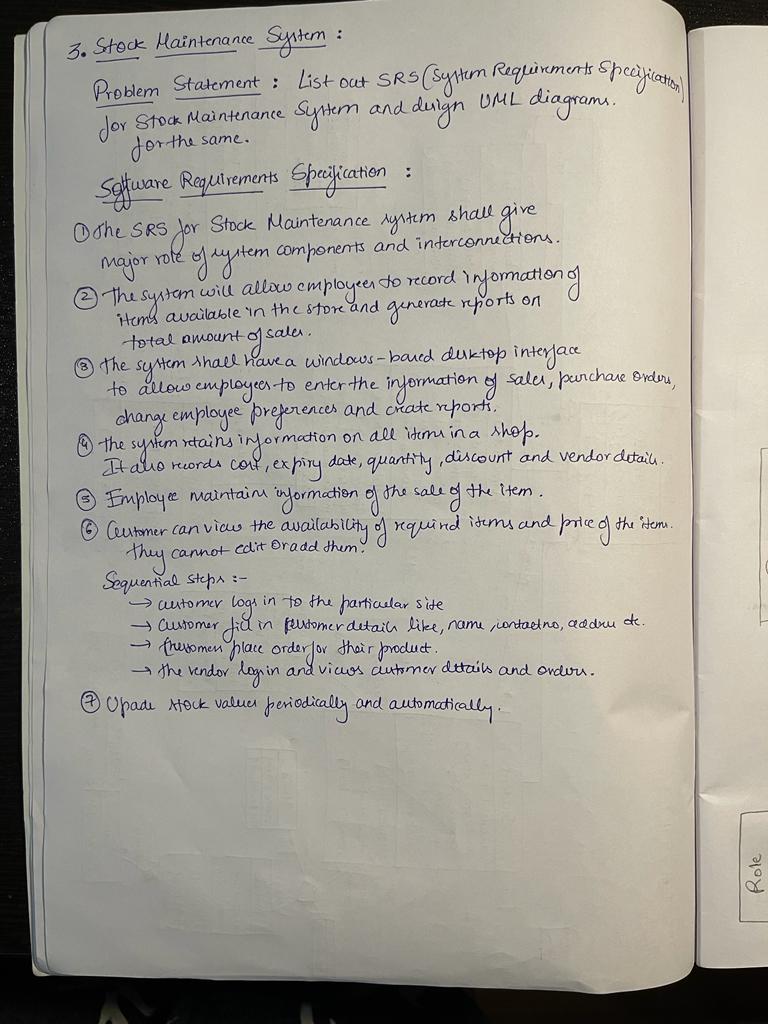 3. Stock Maintenance System :
Problem Statement : List out SRS (System Requirements Specification)
for Stock Maintenance System and design UML diagrams.
for the same.
Software Requirements Specification :
① The SRS for Stock Maintenance system shall give
major role of system components and interconnections.
② The system will allow employees to record information of
items available in the store and generate reports on
total amount of sales.
③ The system shall have a windows-based desktop interface
to allow employees to enter the information of sales, purchase orders,
change employee preferences and create reports.
④ The system retains information on all items in a shop.
It also records cost, expiry date, quantity, discount and vendor details.
⑤ Employee maintains information of the sale of the item.
⑥ Customer can view the availability of required items and price of the items.
They cannot edit or add them.
Sequential steps :-
→ customer logs in to the particular site
→ Customer fill in customer details like, name, contact no, address etc.
→ Customers place order for their product.
→ The vendor login and views customer details and orders.
⑦ Upade stock values periodically and automatically.
Role